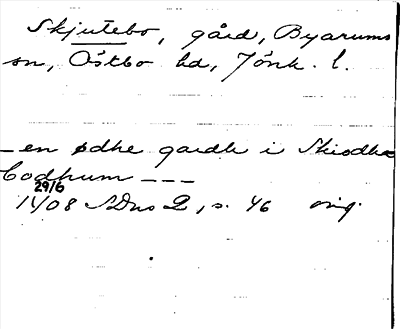 Skjutebo, gård, Byarums
sn, Östbo hd, Jönk. l.
– en ødhe gardh i Skiodhæ
bodhum – – –
29/6
1408 SDns 2, s. 46 orig.